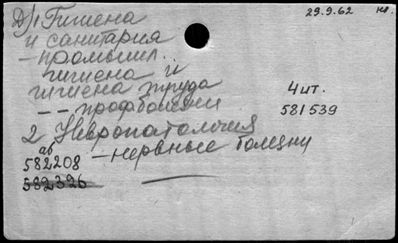 29.9.62
Д) 1 Гигиена
и санитария
- промышл..
гигиена и
гигиена труда
4 шт.
-- профболезни
581539
2 Невропатология
аб
- нервные болезни
582208
582326